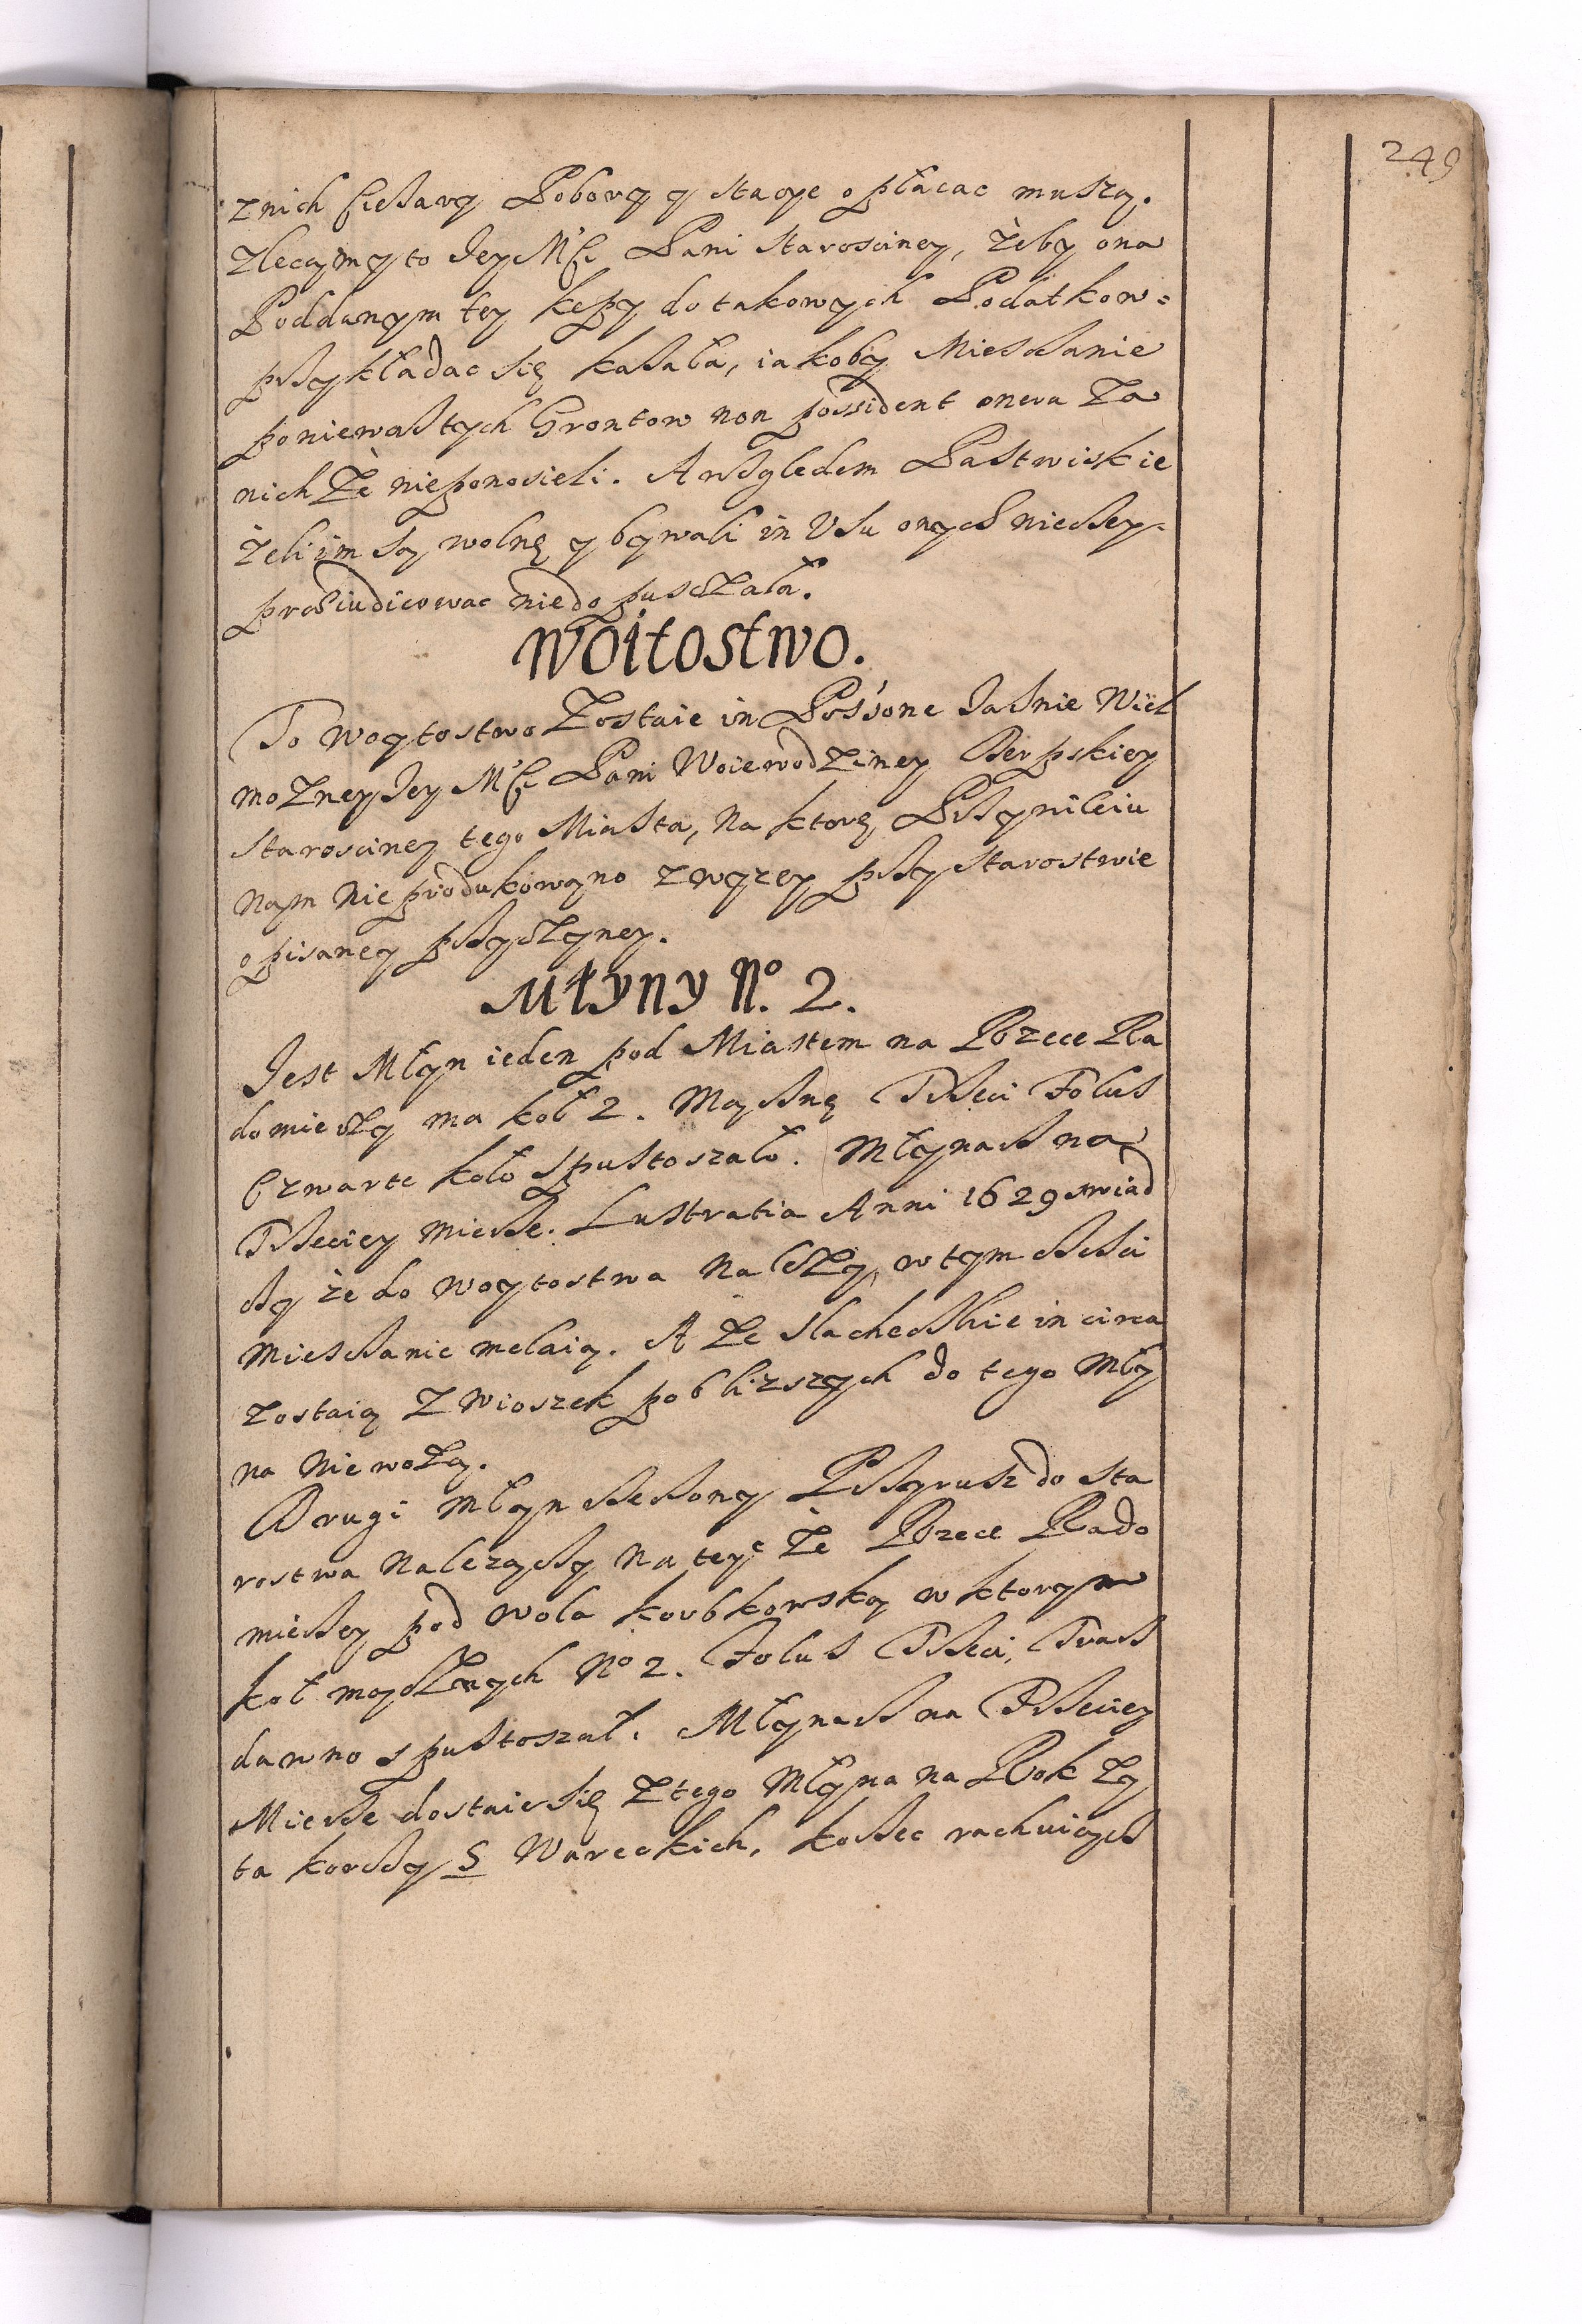 249
znich Ciężary Pobory y stacye opłacac muszą.
Zlecamy to Jey Mći Pani Starosciney, żeby ona
Poddanym tey kępy do takowych Podatkow=
przykładac się kazała, iakoby Mieszczanie
poniewasz tych Grontow non possident onera Za
nich Że nieponosieli. A względem Pastwisk ie
żeli im są wolnę y bywali in Vsu onych niechey=
praeiudicowac niedopuszczała.
Woitostwo.
To Woytostwo Zostaie in Possone Jasnie Wiel
moZney Jey Mći Pani WoiewodZiney Derpskiey
starosciney tego Miasta, Na ktorę Przynileiu
Nam Nie produkowano zwyzey przy starostwie
opisaney przyczyney.
Młyny No. 2.
Jest Młyn ieden pod Miastem na Rzece Ra
domierzy ma koł 2. Mącznę Trzeci Folusz
Czwarte koło spustoszało. Młynarz na
Trzeciey mierze. Lustratia Anni 1629 swiad
czy że do woytostwa Należy, w tym czci
Mieszczanie melaią. A Ze slacheckie in circa
zostaią Z wioszek poblizszych do tego Mły
na Nie wożą.
Drugi Młyn rzeczony Przyrusz do sta
rostwa Nalezączy Na teyże Rzece Rado
mierzy pod wola korbkowską w ktorym
koł mącznych No 2. Folusz Trzeci, Tracz
dawno spustoszał. Młynarz na Trzeciey
Mierze dostaie się Z tego Młyna na Rok Zy
ta korczy 5 Wareckich, korzec rachuiącz